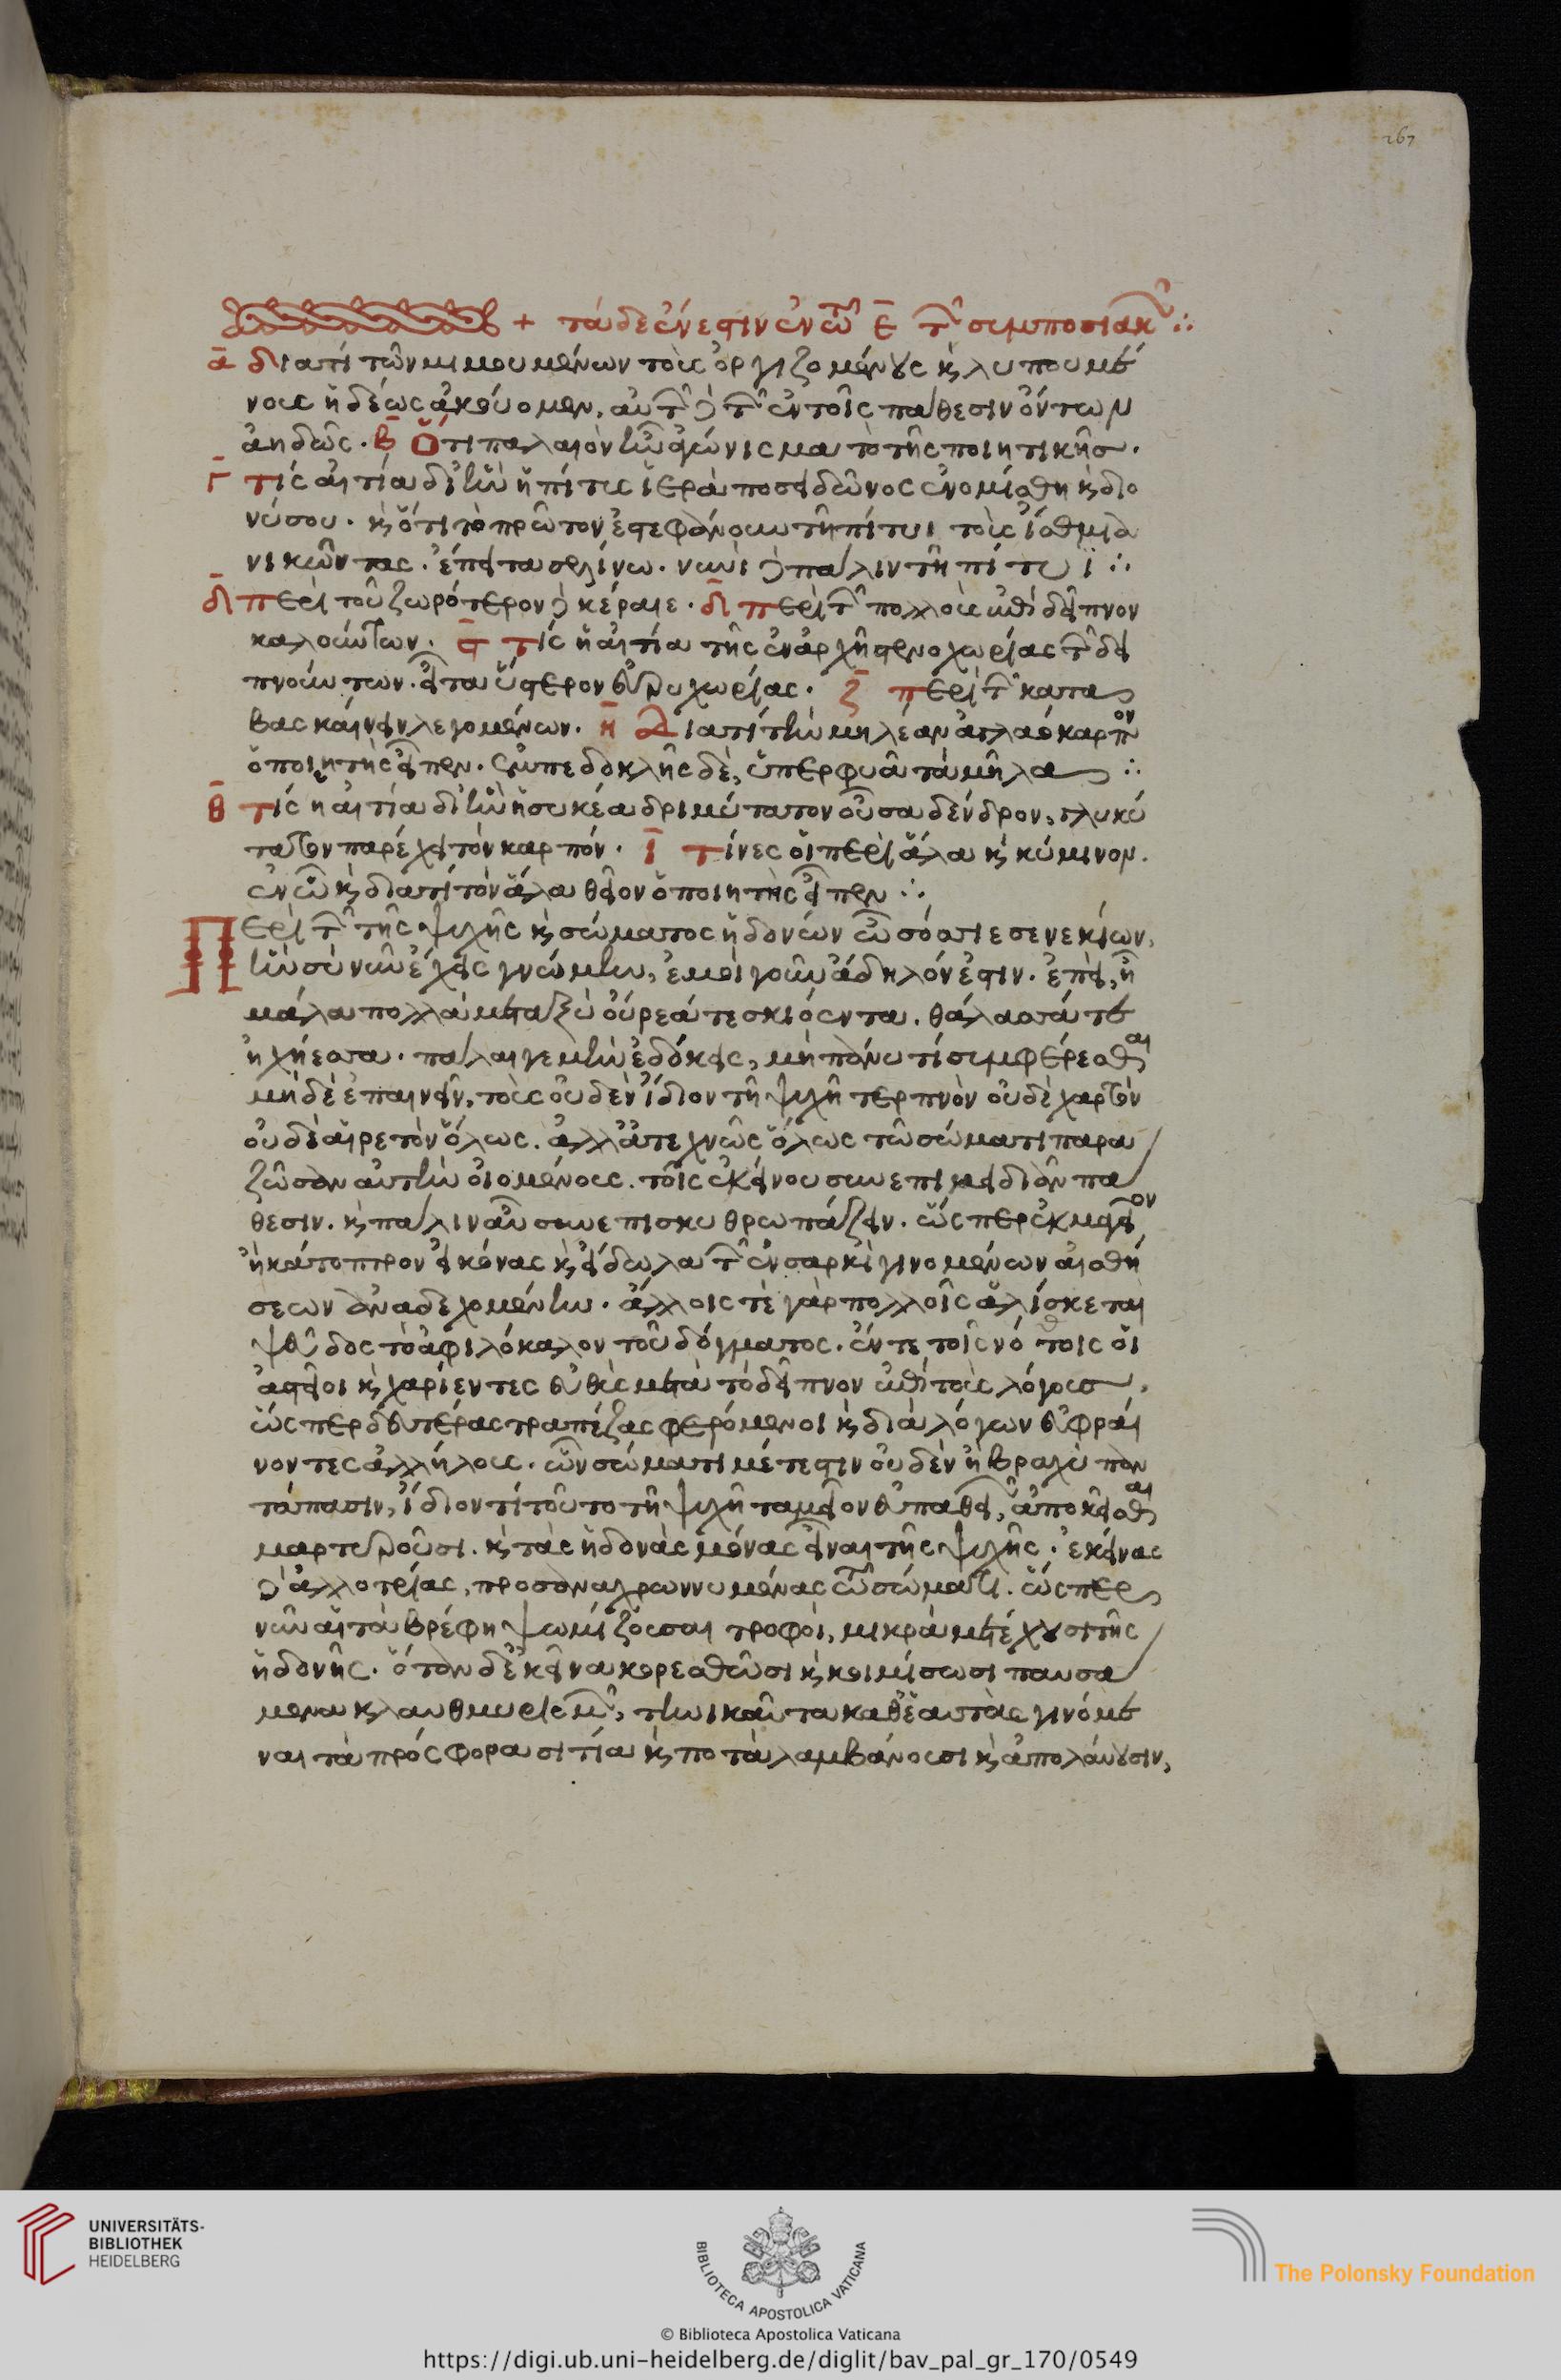 267
+ τάδε ἔνεστιν ἐν τῶ ε̄ τῶν συμποσιακῶν ∴
ᾱ διατί τῶν μιμουμένων τοὺς ὀργιζομένους κ̀ λυπουμέ
νους ἡδέως ἀκούομεν, αὐτῶν δὲ τῶν ἐν τοῖς πάθεσιν ὄντων
ἀηδῶς · β̄ Ὅτι παλαιὸν ἦν ἀγώνισμα τὸ τῆς ποιητικῆς ·
γ̄ τίς αἰτία δι' ἣν ἡ πίτυς ἱερὰ ποσειδῶνος ἐνομίσθη κ̀ διο
νύσου · κ̀ ὅτι τὸ πρῶτον ἐστεφάνουν τῆ πίτυι τοὺς ἴσθμια
νικῶντας · ἔπειτα σελίνω · νυνὶ δὲ πάλιν τῆ πίτυϊ ∴
δ̄ περὶ τοῦ ζωρότερον δὲ κέραιε · δ̄ περὶ τῶν πολλοὺς ἐπὶ δεῖπνον
καλούντων · ς̄ τίς ἡ αἰτία τῆς ἐν ἀρχῆ στενοχωρίας τῶν δει
πνούντων · εἶτα ὕστερον εὐρυχωρίας · ζ̄ περὶ τῶν κατα
βασκαίνειν λεγομένων · η̄ Διατί τὴν μηλέαν ἀγλαόκαρπον
ὁ ποιητὴς εἶπεν · ἐμπεδοκλῆς δὲ, ὑπερφυᾶ τὰ μῆλα ∴
θ̄ τίς ἡ αἰτία δι' ἣν ἡ συκέα δριμύτατον οὖσα δένδρον, γλυκύ
τατον παρέχει τὸν καρπόν · ῑ τίνες οἱ περὶ ἅλα κ̀ κύμινον ·
ἐν ὧ κ̀ διατί τὸν ἅλα θεῖον ὁ ποιητὴς εἶπεν ∴
Περὶ τῶν τῆς ψυχῆς κ̀ σώματος ἡδονέων ὦ σόσσιε σενεκίων,
ἣν σὺ νῦν ἔχεις γνώμην, ἐμοὶ γοῦν ἄδηλόν ἐστιν · ἐπεὶ, ἦ
μάλα πολλὰ μεταξὺ οὔρεά τε σκιόεντα · θάλασσά τε
ἠχήεσσα · πάλαι γε μὴν ἐδόκεις, μὴ πάνυ τί συμφέρεσθαι
μηδὲ ἐπαινεῖν, τοὺς οὐδὲν ἴδιον τῆ ψυχῆ τερπνὸν οὐδὲ χαρτὸν
οὐδὲ αἱρετὸν ὅλως · ἀλλ' ἀτεχνῶς ὅλως τῶ σώματι παρα
ζῶσαν αὐτὴν οἰομένους · τοῖς ἐκείνου συνεπιμειδιᾶν πά
θεσιν · κ̀ πάλιν αὖ συνεπισκυθρωπάζειν · ὥσπερ ἐκμαγεῖον
ἢ κάτοπτρον εἰκόνας κ̀ εἴδωλα τῶν ἐν σαρκὶ γινομένων αἰσθή
σεων ἀναδεχομένην · ἄλλοις τὲ γὰρ πολλοῖς ἁλίσκεται
ψεῦδος τὸ ἀφιλόκαλον τοῦ δόγματος · ἔν τε τοῖς νό τοις οἱ
ἀστεῖοι κ̀ χαρίεντες εὐθὺς μετὰ τὸ δεῖπνον ἐπὶ τοὺς λόγους,
ὥσπερ δευτέρας τραπέζας φερόμενοι κ̀ διὰ λόγων εὐφραί
νοντες ἀλλήλους · ὧν σώματι μέτεστιν οὐδὲν ἢ βραχὺ παν
τάπασιν, ἴδιόν τι τοῦτο τῆ ψυχῆ ταμεῖον εὐπαθείας ἀποκεῖσθαι
μαρτυροῦσι · κ̀ τὰς ἡδονὰς μόνας εἶναι τῆς ψυχῆς · ἐκείνας
δὲ ἀλλοτρίας, προσαναχρωννυμένας τῶ σώματι · ὥσπερ
νῦν αἱ τὰ βρέφη ψωμίζουσαι τροφοὶ, μικρὰ μετέχουσι τῆς
ἡδονῆς · ὅταν δ' ἐκεῖνα κορεσθῶσι κ̀ κοιμίσωσι παυσά
μενα κλαυθμυρισμῶν, τηνικαῦτα καθ' ἑαυτὰς γινόμε
ναι τὰ πρόσφορα σιτία κ̀ ποτὰ λαμβάνουσι κ̀ ἀπολαύουσιν,
UNIVERSITÄTS-
BIBLIOTHEK
HEIDELBERG
BIBLIOTECA APOSTOLICA VATICANA
The Polonsky Foundation
© Biblioteca Apostolica Vaticana
https://digi.ub.uni-heidelberg.de/diglit/bav_pal_gr_170/0549